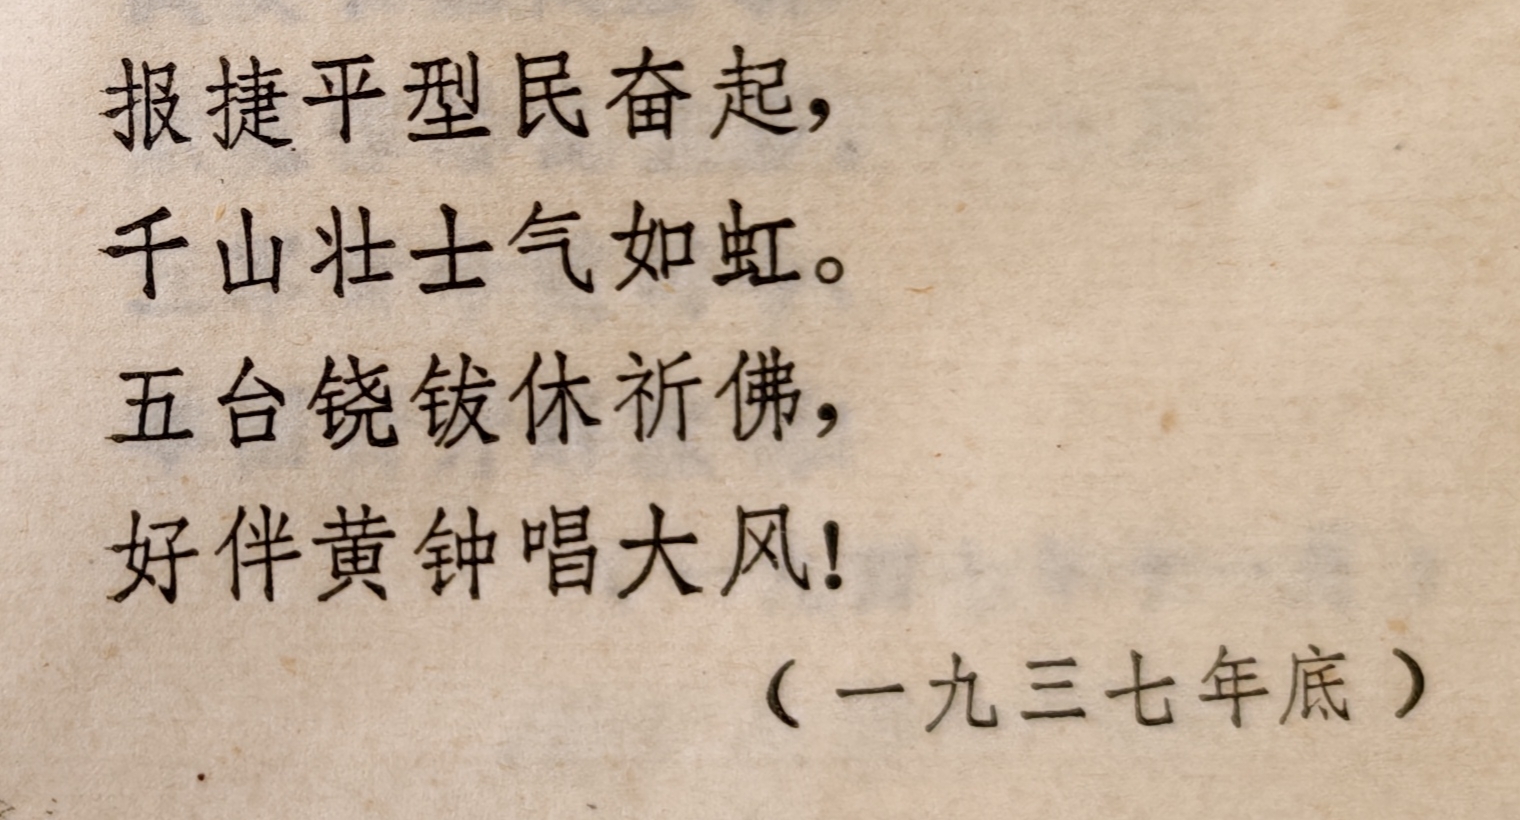 报捷平型民奋起，
千山壮士气如虹。
五台铙钹休祈佛，
好伴黄钟唱大风！
（一九三七年底）